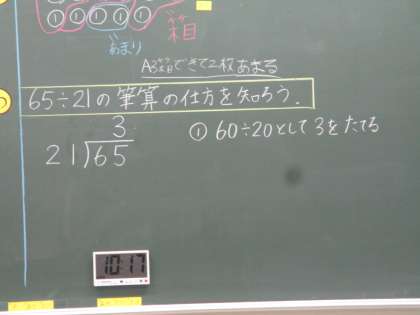 ① ① ① ① ①
あまり
箱
A 3箱できて2枚あまる
65÷21の筆算の仕方を知ろう.
3
21)65
① 60÷20として3をたてる
10:17